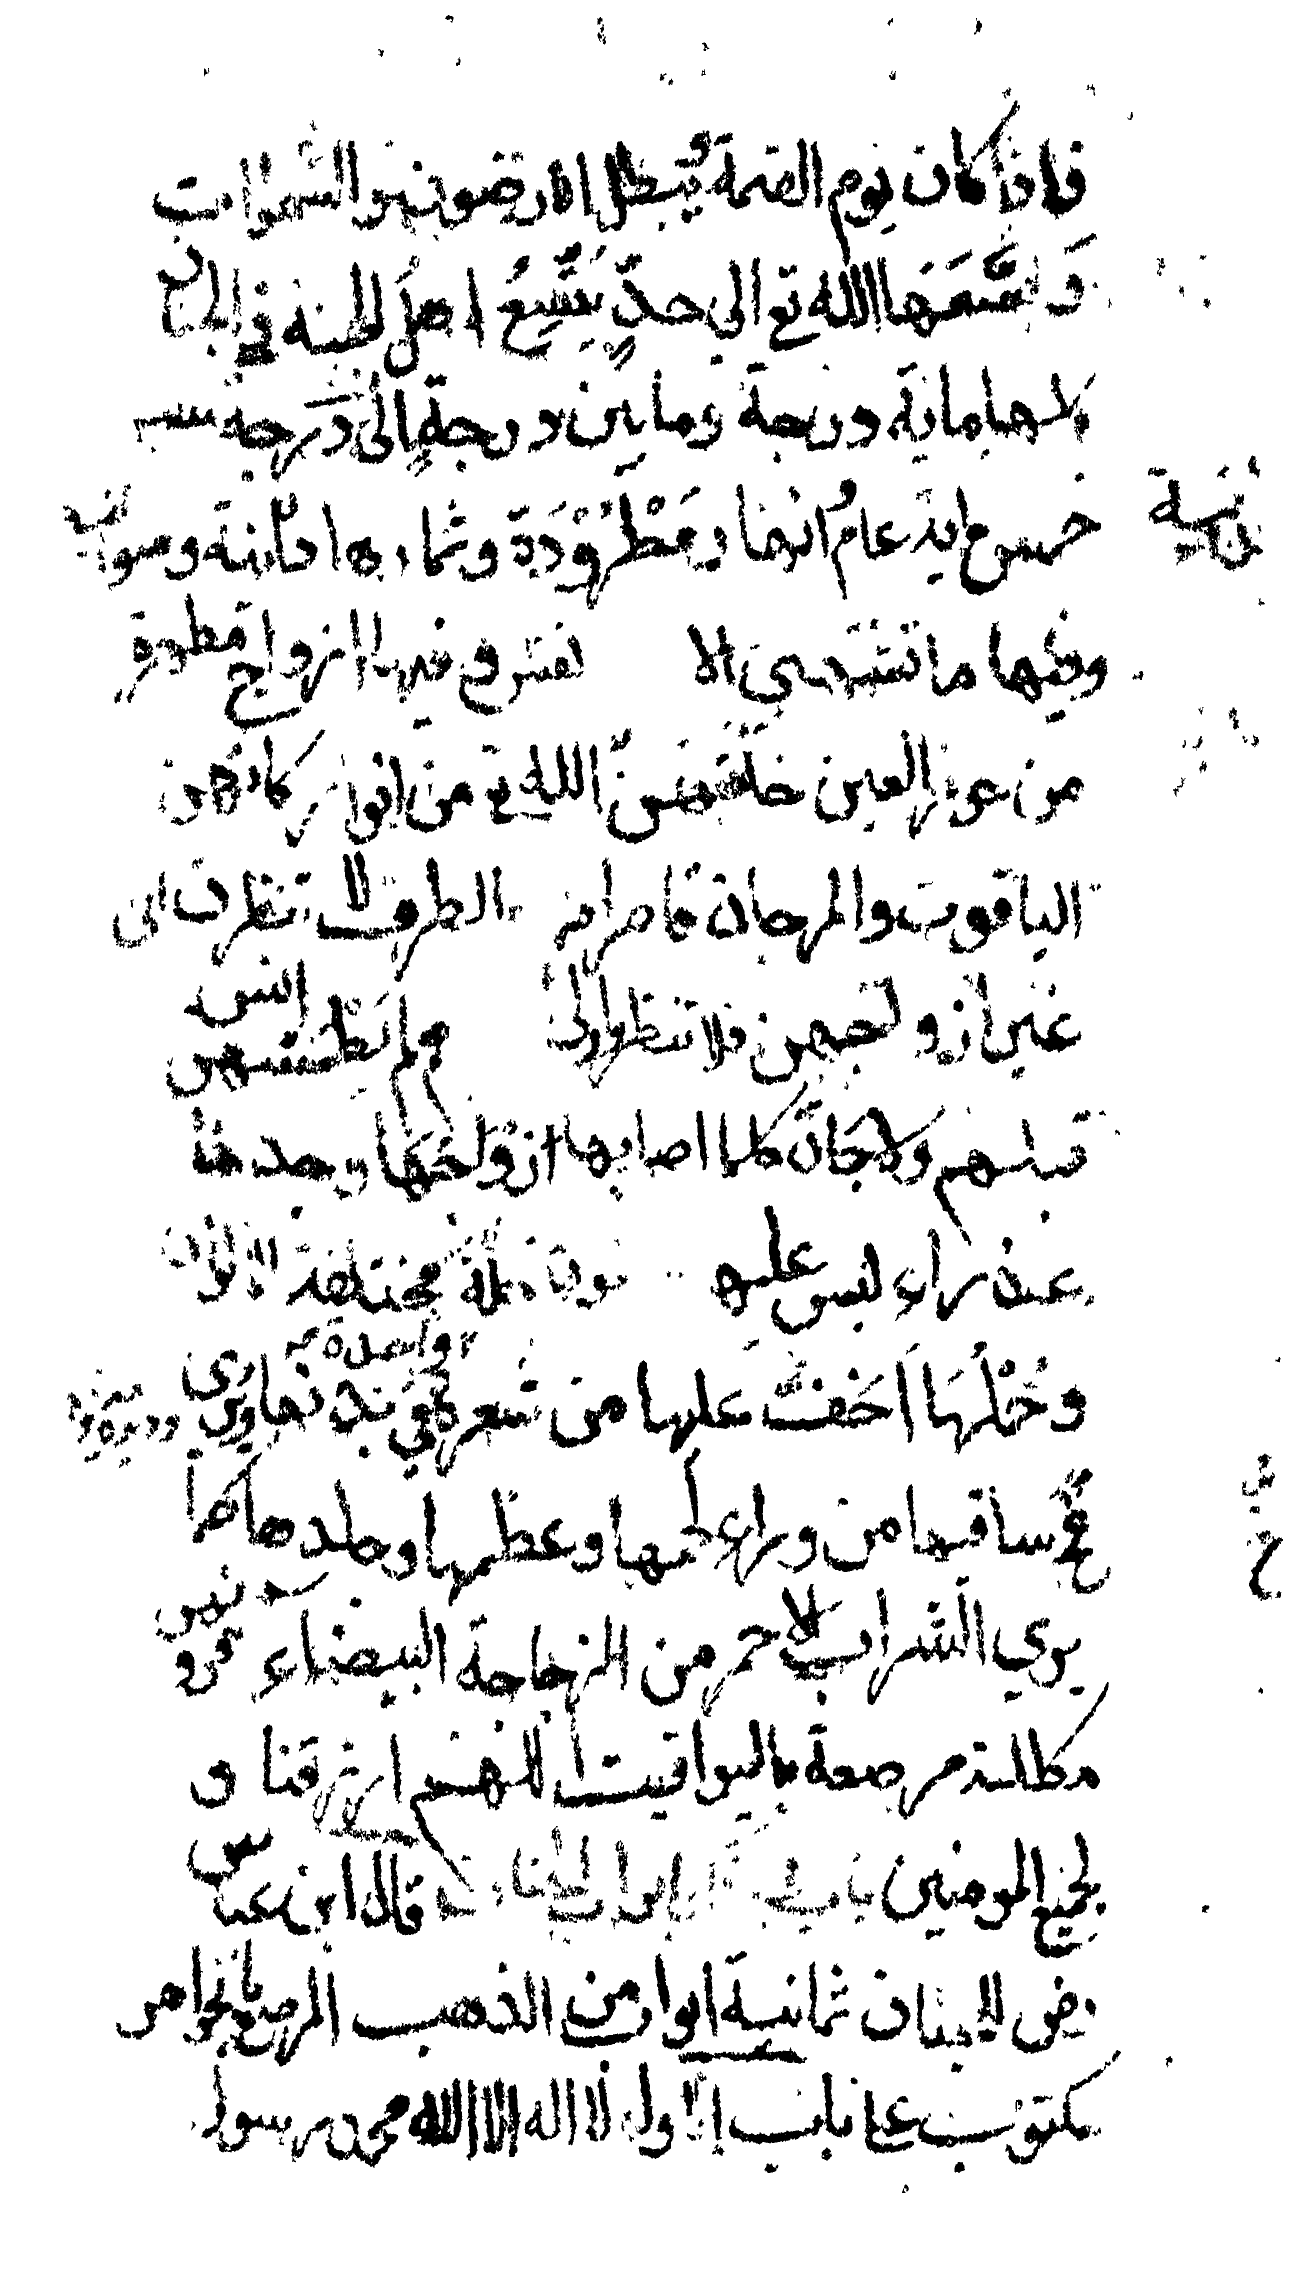 فاذا كان يوم القيمة يبطل الارضون والسموات
ويسعها الله تع الى حد يتسع اهل الجنة في الجنان
كلها ماية درجة وما بين درجة الى درجة
خمس ماية عام انهار مطرودة وثمارها دانية
وفيها ما تشتهي الا نفس وفيها ازواج مطهرة
من حور العين خلقهن الله تع من انوار كانهن
الياقوت والمرجان قاصرات الطرف لا تنظرن الى
غير ازواجهن فلا تنظرون ولم يطمثهن انس
قبلهم ولا جان كلما اصابها ازواجها وجدها
عذراء ليس عليها حلة مختلفة الالوان
وحملها اخف عليها من شعرة في بدنها ويرى
مخ ساقيها من وراء لحمها وعظمها وجلدها كما
يرى الشراب الاحمر من الزجاجة البيضاء
مكللة مرصعة باليواقيت اللهم ارزقنا و
لجميع المومنين باب في ابواب الجنان قال ابن عباس
رض للجنان ثمانية ابواب من الذهب المرصع بالجواهر
مكتوب على باب الاول لا اله الا الله محمد رسول